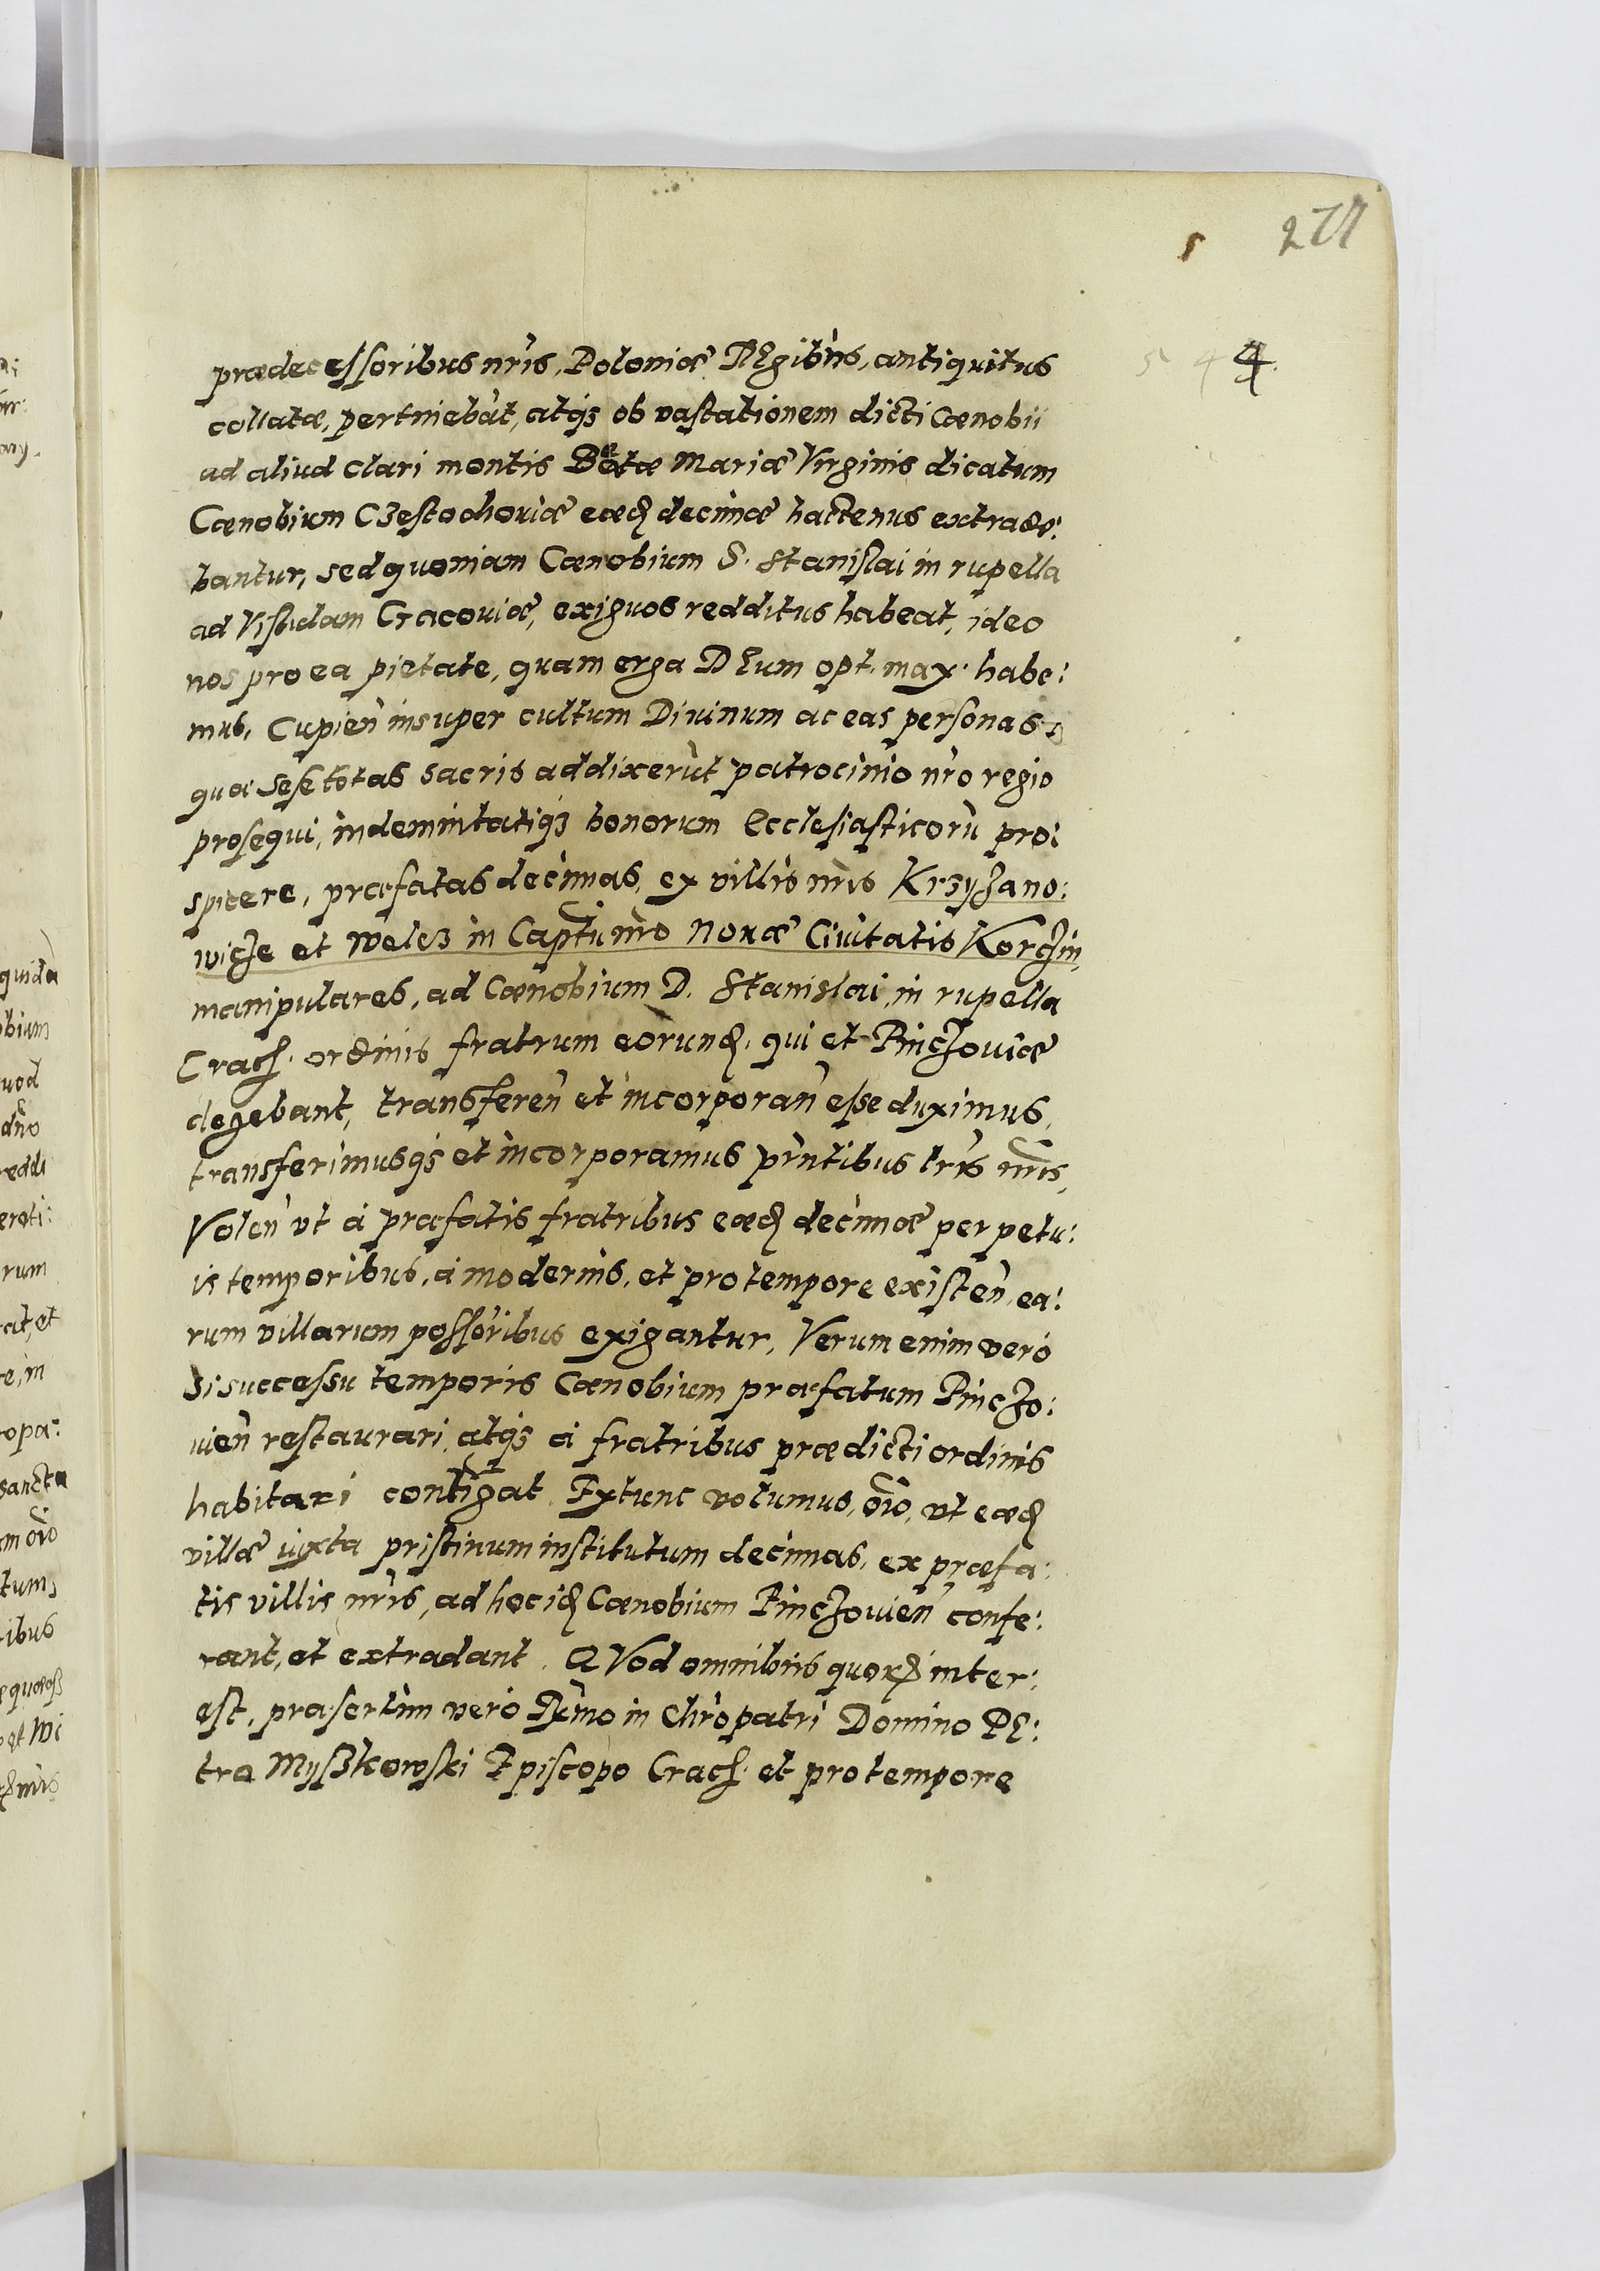 277
5
5 4 4
prædecessoribus nr̃is, Poloniæ REgibus, antiquitus
collatæ, pertinebãt, atq3 ob vastationem dicti Cœnobii
ad aliud Clari montis Beatæ Mariæ Virginis dicatum
Cœnobium Czestochoviæ eæd decimæ hactenus extrade:
bantur, sed quoniam Cœnobium S. Stanislai in rupella
ad Vistulam Cracoviæ, exiguos redditus habeat, ideo
nos pro ea pietate, quam erga DEum opt. max. habe:
mus, Cupieñ insuper cultum Divinum ac eas personas
quæ sese totas sacris addixerũt patrocinio nr̃o regio
prosequi, indemnitatiq3 bonorum Ecclesiasticorũ pro:
spicere, præfatas decimas, ex villis nr̃is Krzyżano:
wicze et Welecz in Captũ nr̃o Novæ Civitatis Korczin,
manipulares, ad Cœnobium D. Stanislai, in rupella
Crac. ordinis fratrum eorund. qui et Pinczoviæ
degebant, transfereñ et incorporañ esse duximus,
transferimusq3 et incorporamus pr̃ntibus lr̃is nr̃is,
Voleñ vt à præfatis fratribus eæd decimæ perpetu:
is temporibus, à modernis, et pro tempore existeñ, ea:
rum villarum possõribus exigantur, Verum enim vero
si successu temporis Cœnobium præfatum Pinczo:
vieñ restaurari, atq3 à fratribus prædicti ordinis
habitari contigat, Extunc volumus, oĩo, vt eæd
villæ iuxta pristinum institutum decimas, ex præfa:
tis villis nr̃is, ad hoc id Cœnobium Pinczovieñ confe:
rant, et extradant. QVod omnibus quorũ inter:
est, præsertim vero Rx̃mo in Chr̃o patri Domino PE:
tro Myszkowski Episcopo Crac. et pro tempore